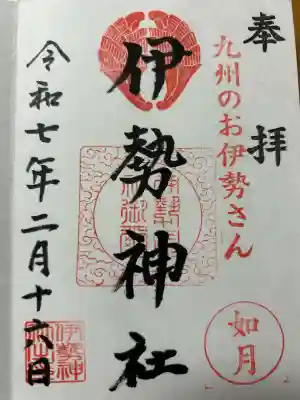 奉拝
九州のお伊勢さん
伊勢神社
令和七年二月十六日
如月